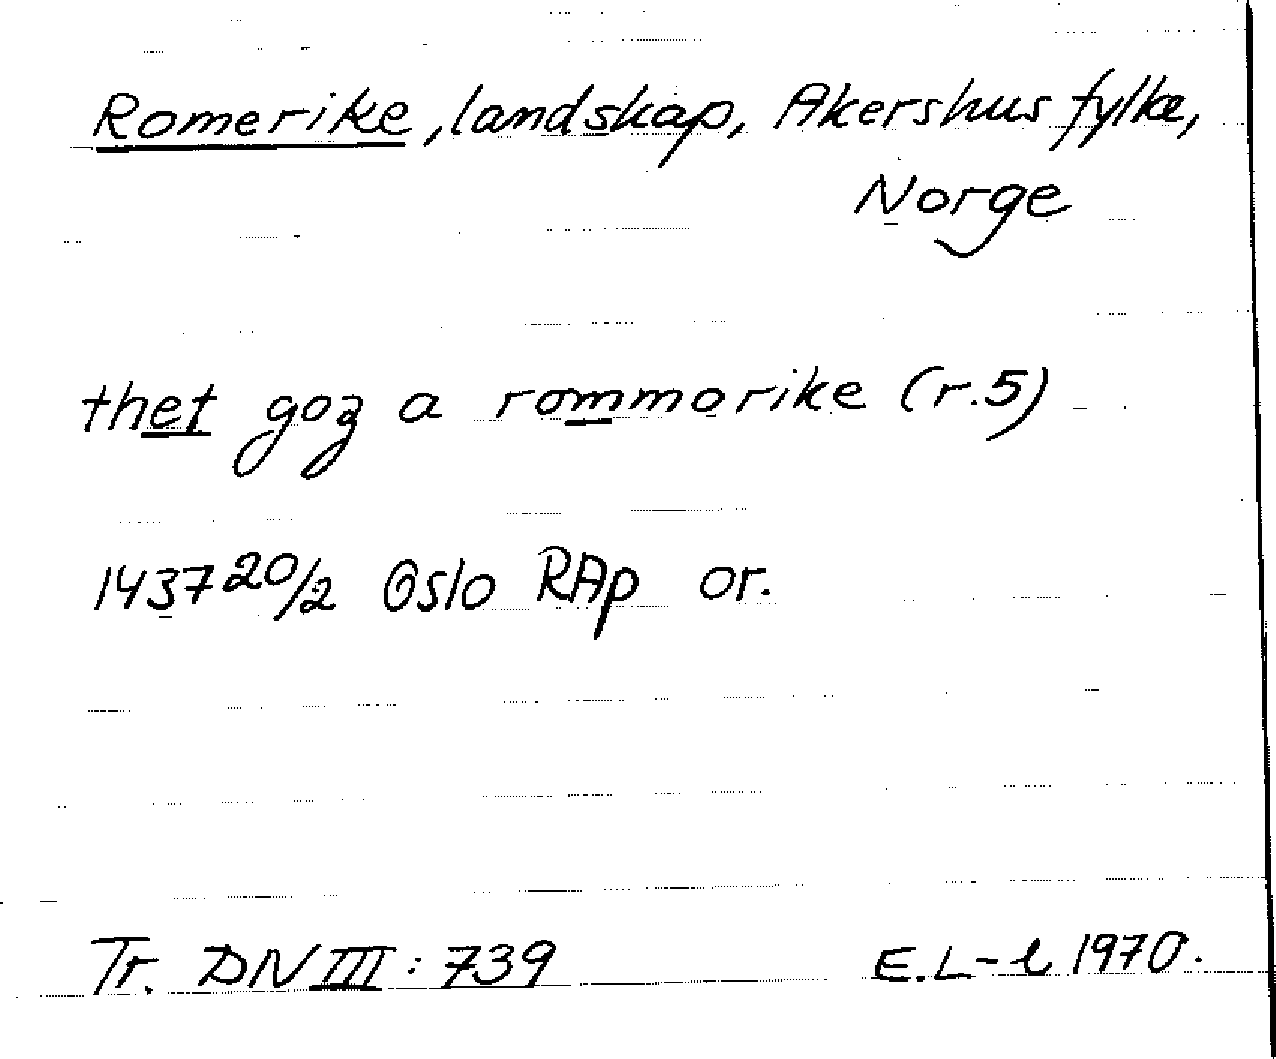 Romerike, landskap, Akershus fylke,
Norge
thet goz a rommorike (r.5)
1437 20/2 Oslo RAp or.
Tr. DN III: 739 E.L-l 1970.